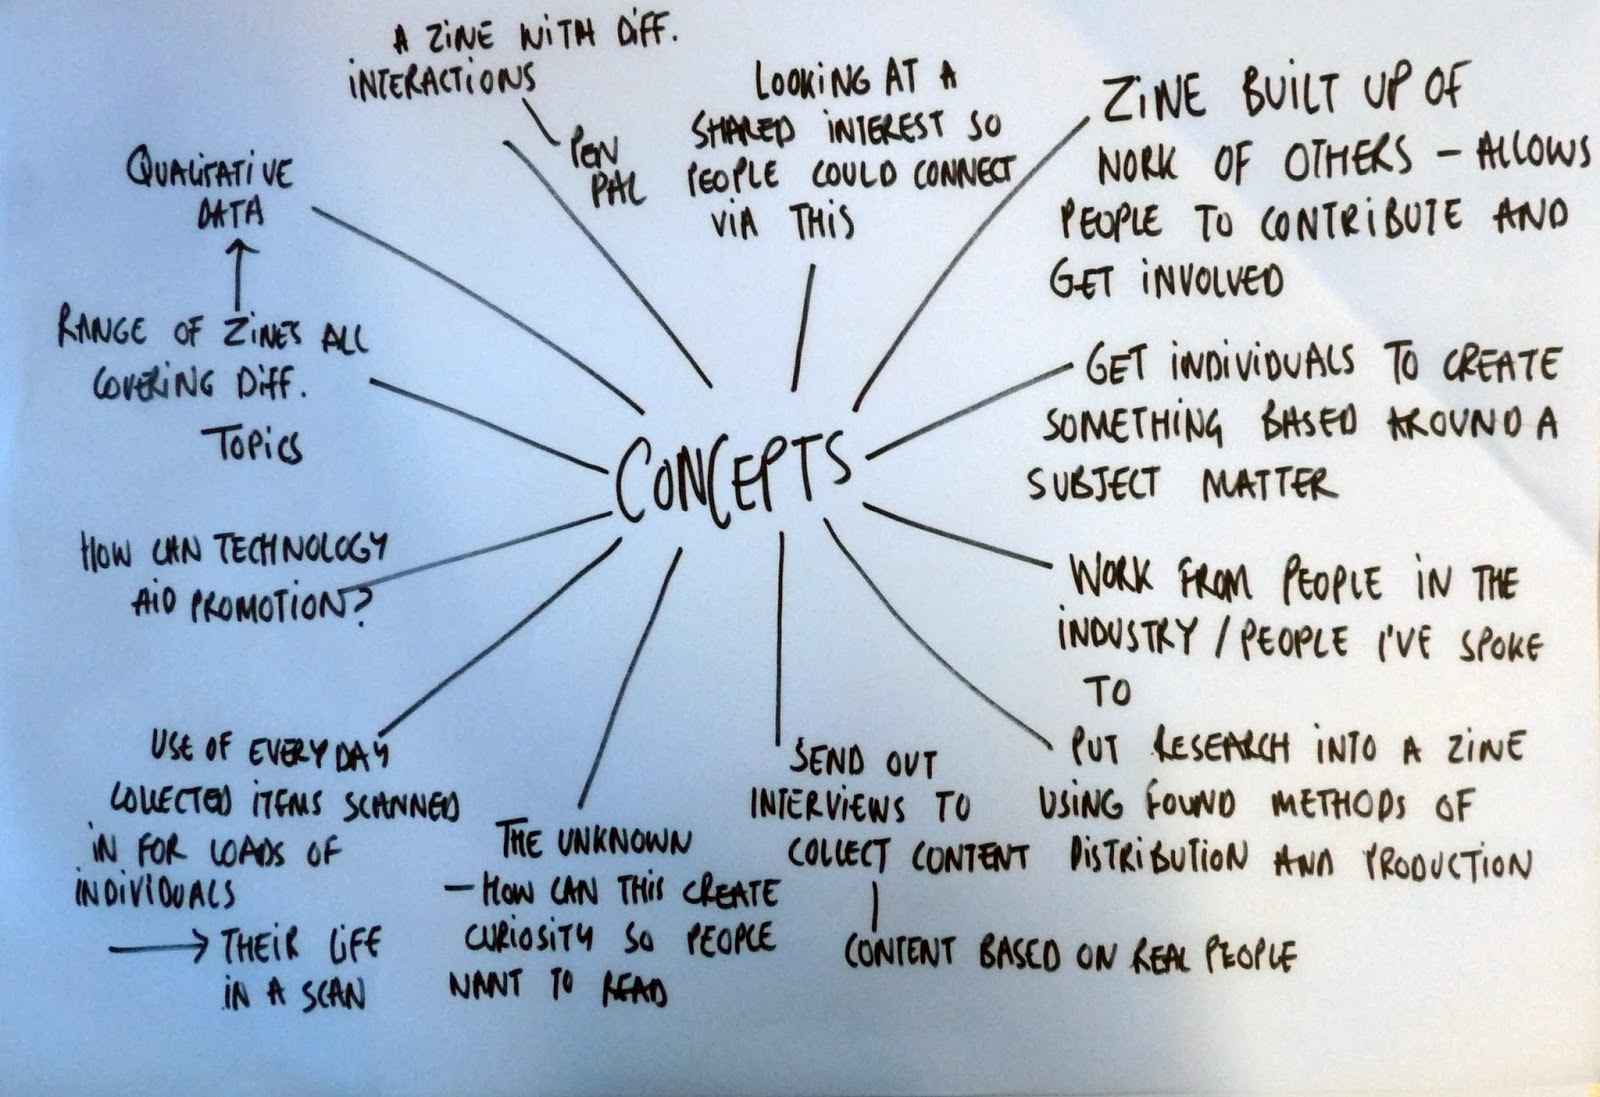 A ZINE WITH DIFF.
INTERACTIONS
PEN
PAL
LOOKING AT A
SHARED INTEREST SO
PEOPLE COULD CONNECT
VIA THIS
ZINE BUILT UP OF
WORK OF OTHERS - ALLOWS
PEOPLE TO CONTRIBUTE AND
GET INVOLVED
QUALITATIVE
DATA
RANGE OF ZINES ALL
COVERING DIFF.
TOPICS
CONCEPTS
GET INDIVIDUALS TO CREATE
SOMETHING BASED AROUND A
SUBJECT MATTER
HOW CAN TECHNOLOGY
AID PROMOTION?
WORK FROM PEOPLE IN THE
INDUSTRY / PEOPLE I'VE SPOKE
TO
USE OF EVERYDAY
COLLECTED ITEMS SCANNED
IN FOR LOADS OF
INDIVIDUALS
→ THEIR LIFE
IN A SCAN
THE UNKNOWN
- HOW CAN THIS CREATE
CURIOSITY SO PEOPLE
WANT TO READ
SEND OUT
INTERVIEWS TO
COLLECT CONTENT
CONTENT BASED ON REAL PEOPLE
PUT RESEARCH INTO A ZINE
USING FOUND METHODS OF
DISTRIBUTION AND PRODUCTION